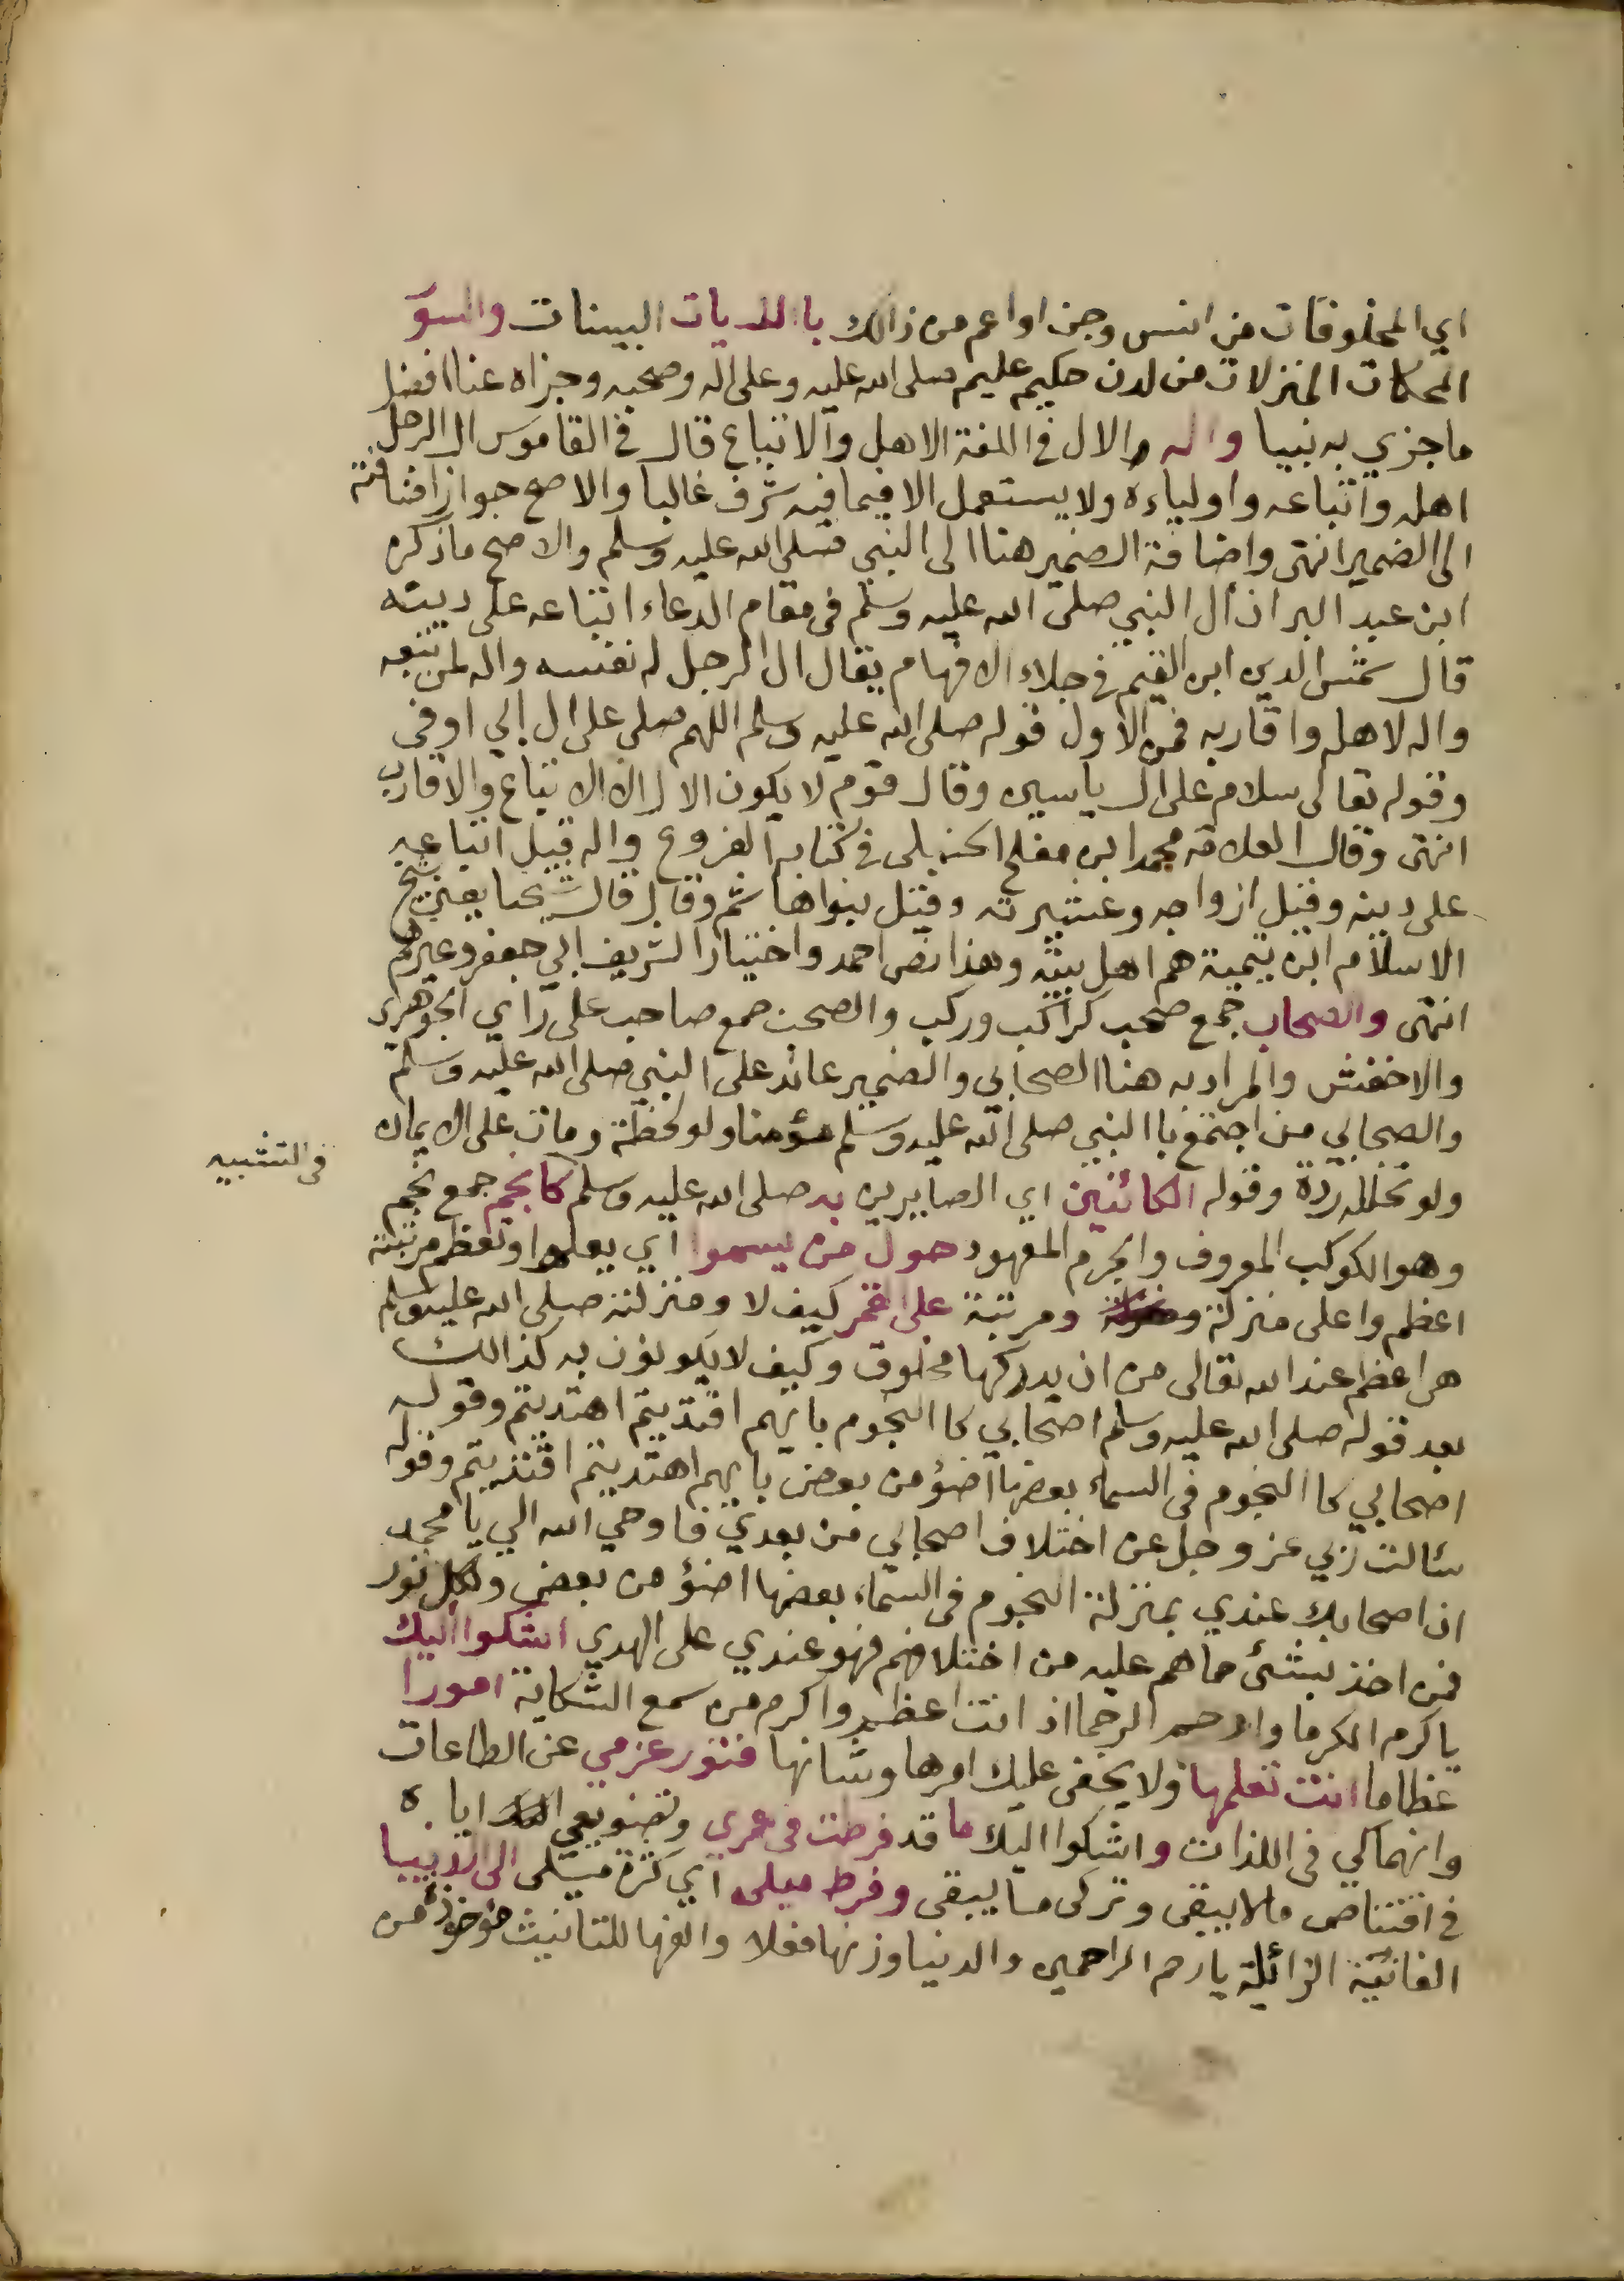 اي المخلوقات من انس وجن او اعم من ذالك باالايات البينات والسور
المحكمات المنزلات من لدن حكيم عليم صلى الله عليه وعلى اله وصحبه وجزاه عنا افضل
ما جزي به نبيا واله والال في اللغة الاهل والاتباع قال في القاموس ال الرجل
اهله واتباعه واولياءه ولا يستعمل الا فيما فيه شرف غالبا والاصح جواز اضافته
الى الضمير انتهى واضافة الضمير هنا الى النبي صلى الله عليه وسلم والاصح ما ذكره
ابن عبد البر ان أل النبي صلى الله عليه وسلم في مقام الدعاء اتباعه على دينه
قال شمس الدين ابن القيم في جلاء الافهام يقال ال الرجل له نفسه واله لمن تبعه
واله لاهله واقاربه فمن الاول قوله صلى الله عليه وسلم اللهم صلى على ال ابي اوفى
وقوله تعالى سلام على ال ياسين وقال قوم لا يكون الال الا الاتباع والاقارب
انتهى وقال العلامة محمد ابن مفلح الحنبلي في كتابه الفروع واله قيل اتباعه
على دينه وقيل ازواجه وعشيرته وقيل بنوا هاشم وقال قال شيخنا يعني شيخ
الاسلام ابن تيمية هم اهل بيته وهذا نص احمد واختيار الشريف ابي جعفر وغيرهم
انتهى والصحاب جمع صحب كراكب وركب والصحب جمع صاحب على راي الجوهري
والاخفش والمراد به هنا الصحابي والضمير عائد على النبي صلى الله عليه وسلم
والصحابي من اجتمع باالنبي صلى الله عليه وسلم مؤمنا ولو لحظة ومات على الايمان
ولو تخلله ردة وقوله الكائنين اي الصايرين به صلى الله عليه وسلم كانجم جمع نجم
في التشبيه
وهو الكوكب المعروف والجرم المعهود حول من يسموا اي يعلوا وتعظم مرتبته
اعظم واعلى منزلة ومرتبة على القمر كيف لا ومنزلته صلى الله عليه وسلم
هي اعظم عند الله تعالى من ان يدركها مخلوق وكيف لا يكونون به كذالك
بعد قوله صلى الله عليه وسلم اصحابي كا النجوم بايهم اقتديتم اهتديتم وقوله
اصحابي كا النجوم في السماء بعضها اضؤ من بعض بايهم اهتديتم اقتديتم وقوله
سئالت ربي عز وجل عن اختلاف اصحابي من بعدي فاوحي الله الي يا محمد
ان اصحابك عندي بمنزلة النجوم في السماء بعضها اضؤ من بعض ولكل نور
فمن اخذ بشئ مما هم عليه من اختلافهم فهو عندي على الهدي اشكوا اليك
ياكرم الكرما وارحم الرحما اذ انت اعظم واكرم من سمع الشكاية امورا
عظاما انت تعلمها ولا يخفى عليك امرها وشانها فتور عزمي عن الطاعات
وانهماكي في اللذات واشكوا اليك ما قد فرطت في عمري وتضويعي اياه
في اقتناص مالا يبقى وتركى ما يبقى وفرط ميلى اي كثرة ميلى الى الدنيا
الفانية الزائلة يارحم الراحمين والدنيا وزنها فعلا والفها للتانيث مؤخوذة من